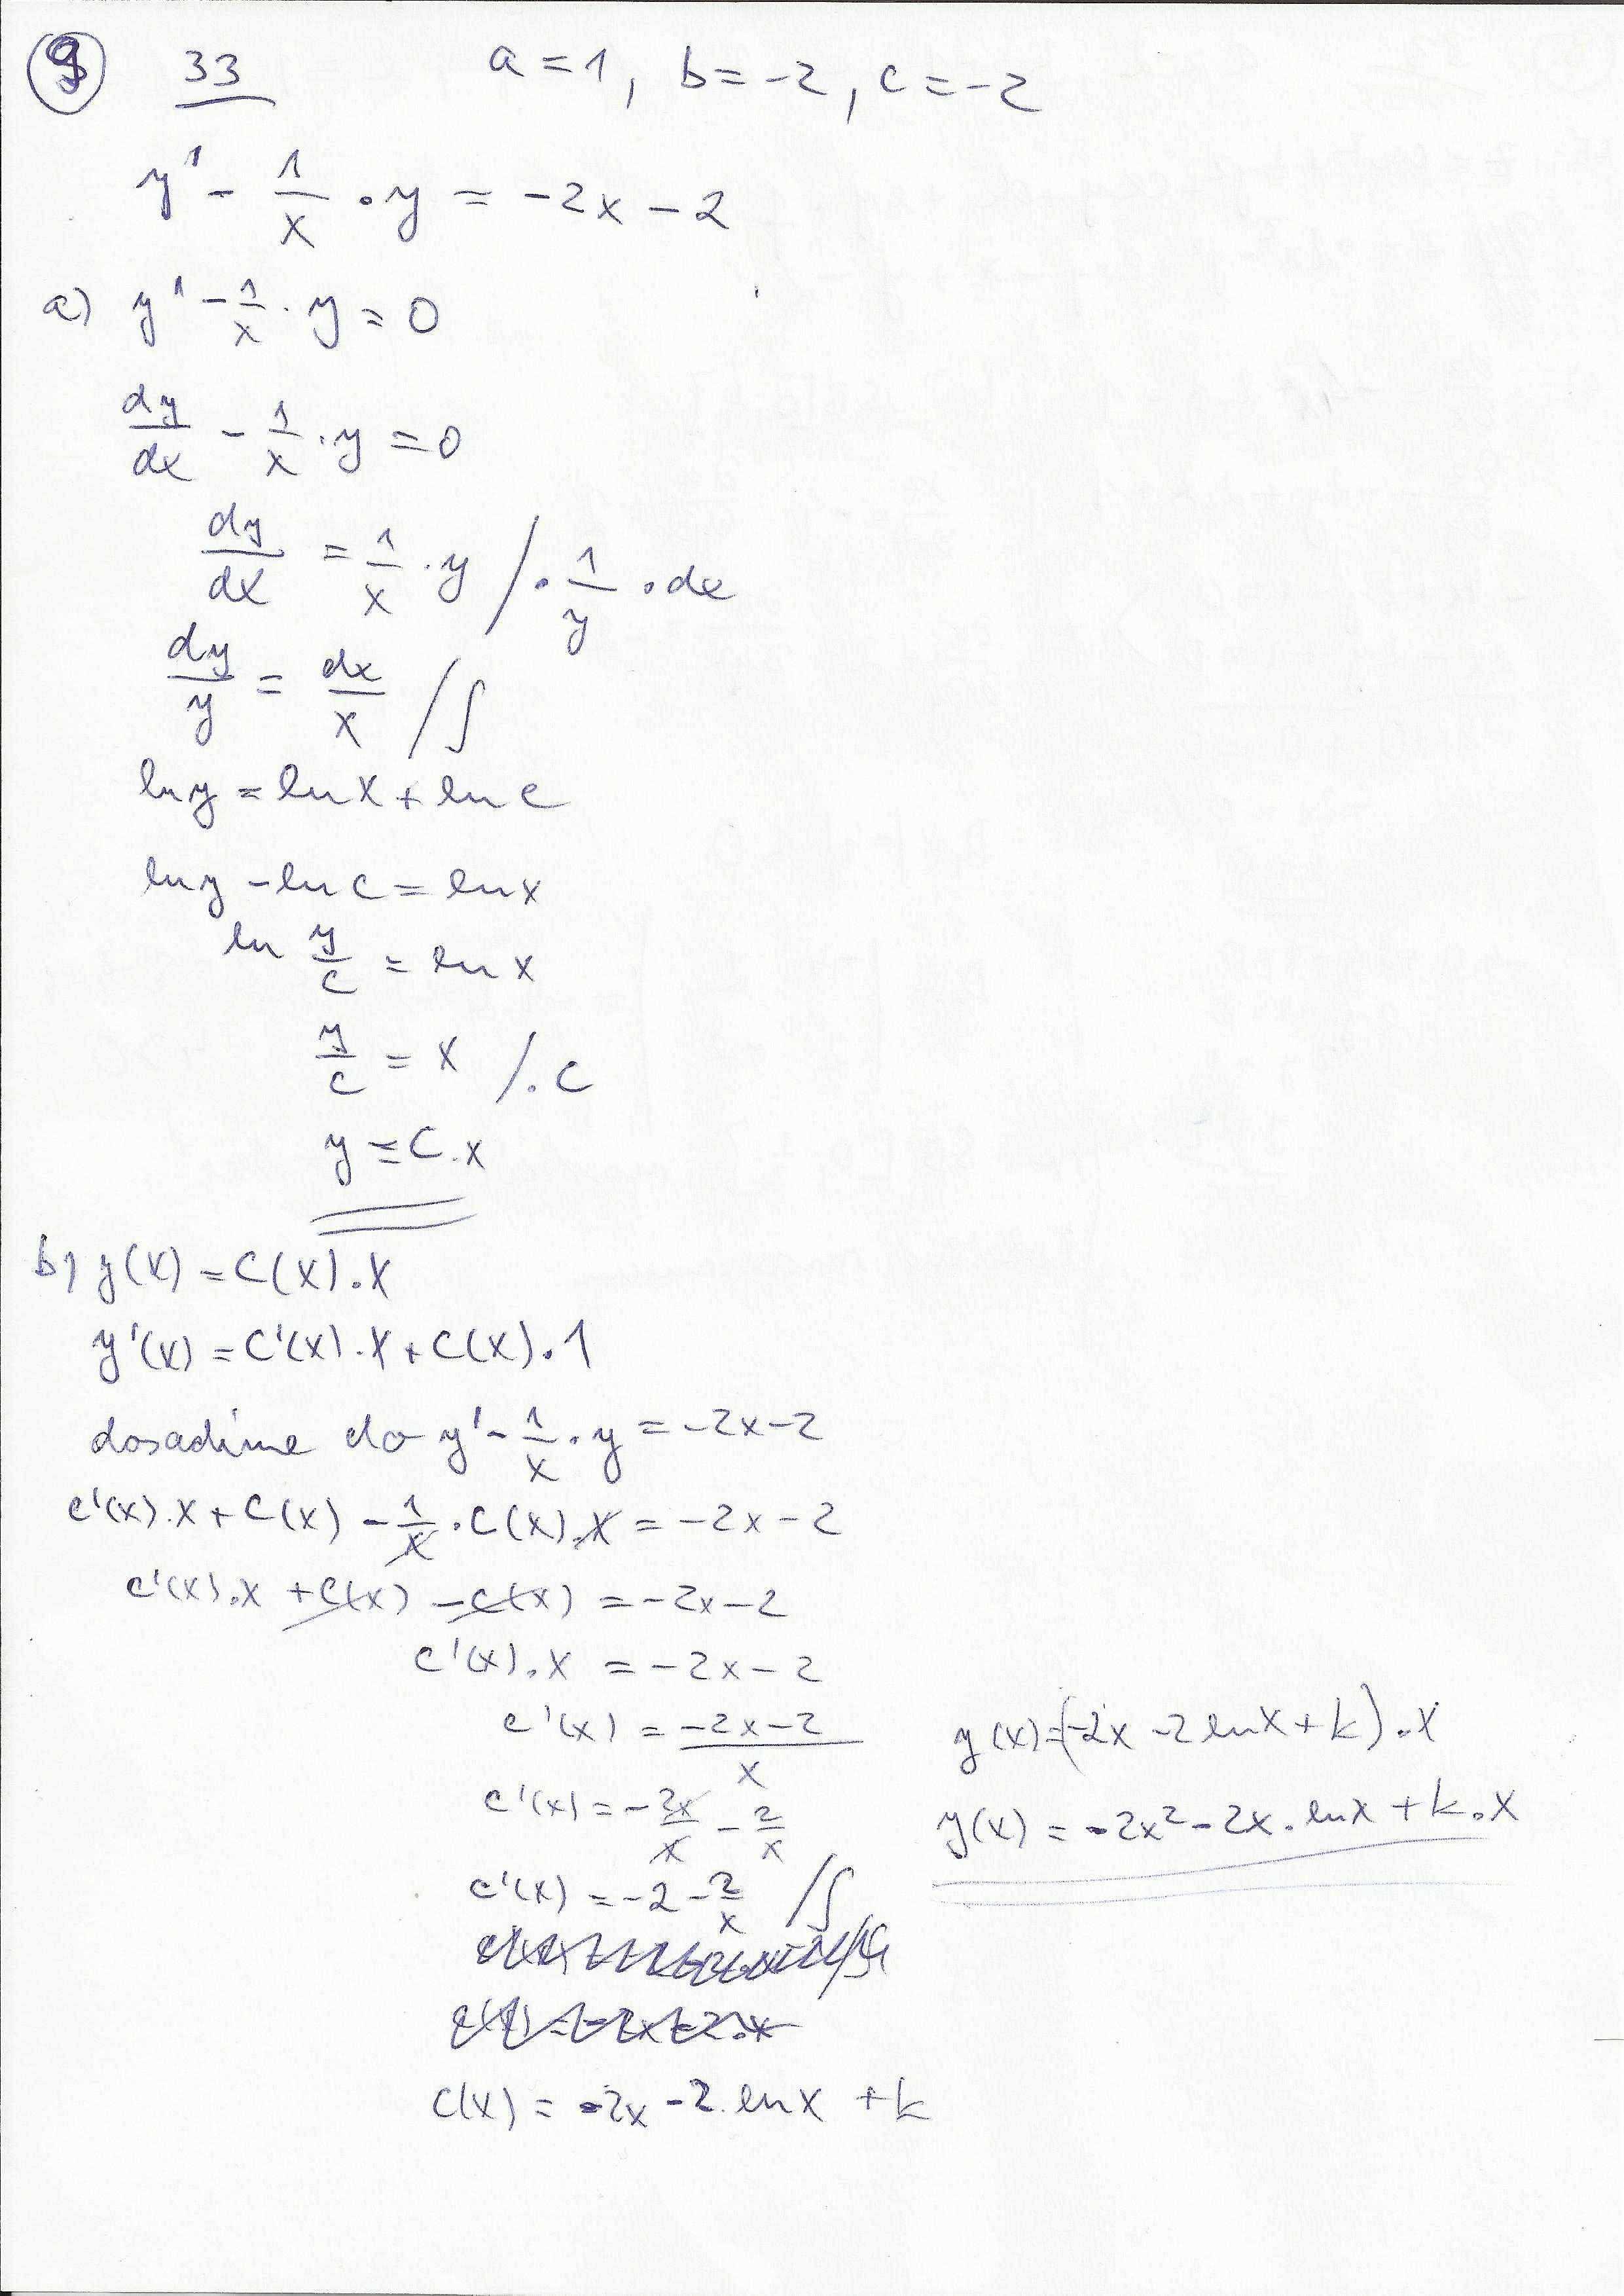 9 33 a=1, b=-2, c=-2
y' - 1/x · y = -2x - 2
a) y' - 1/x · y = 0
dy/dx - 1/x · y = 0
dy/dx = 1/x · y / · 1/y · dx
dy/y = dx/x / ∫
ln y = ln x + ln c
ln y - ln c = ln x
ln y/c = ln x
y/c = x / · c
y = C · x
b) y(x) = C(x) · x
y'(x) = C'(x) · x + C(x) · 1
dosadíme do y' - 1/x · y = -2x - 2
c'(x) · x + C(x) - 1/x · C(x) · x = -2x - 2
c'(x) · x + C(x) - C(x) = -2x - 2
c'(x) · x = -2x - 2
c'(x) = (-2x - 2)/x
c'(x) = -2x/x - 2/x
c'(x) = -2 - 2/x / ∫
c(x) = -2x - 2 · ln x + k
y(x) = (-2x - 2 ln x + k) · x
y(x) = -2x² - 2x · ln x + k · x